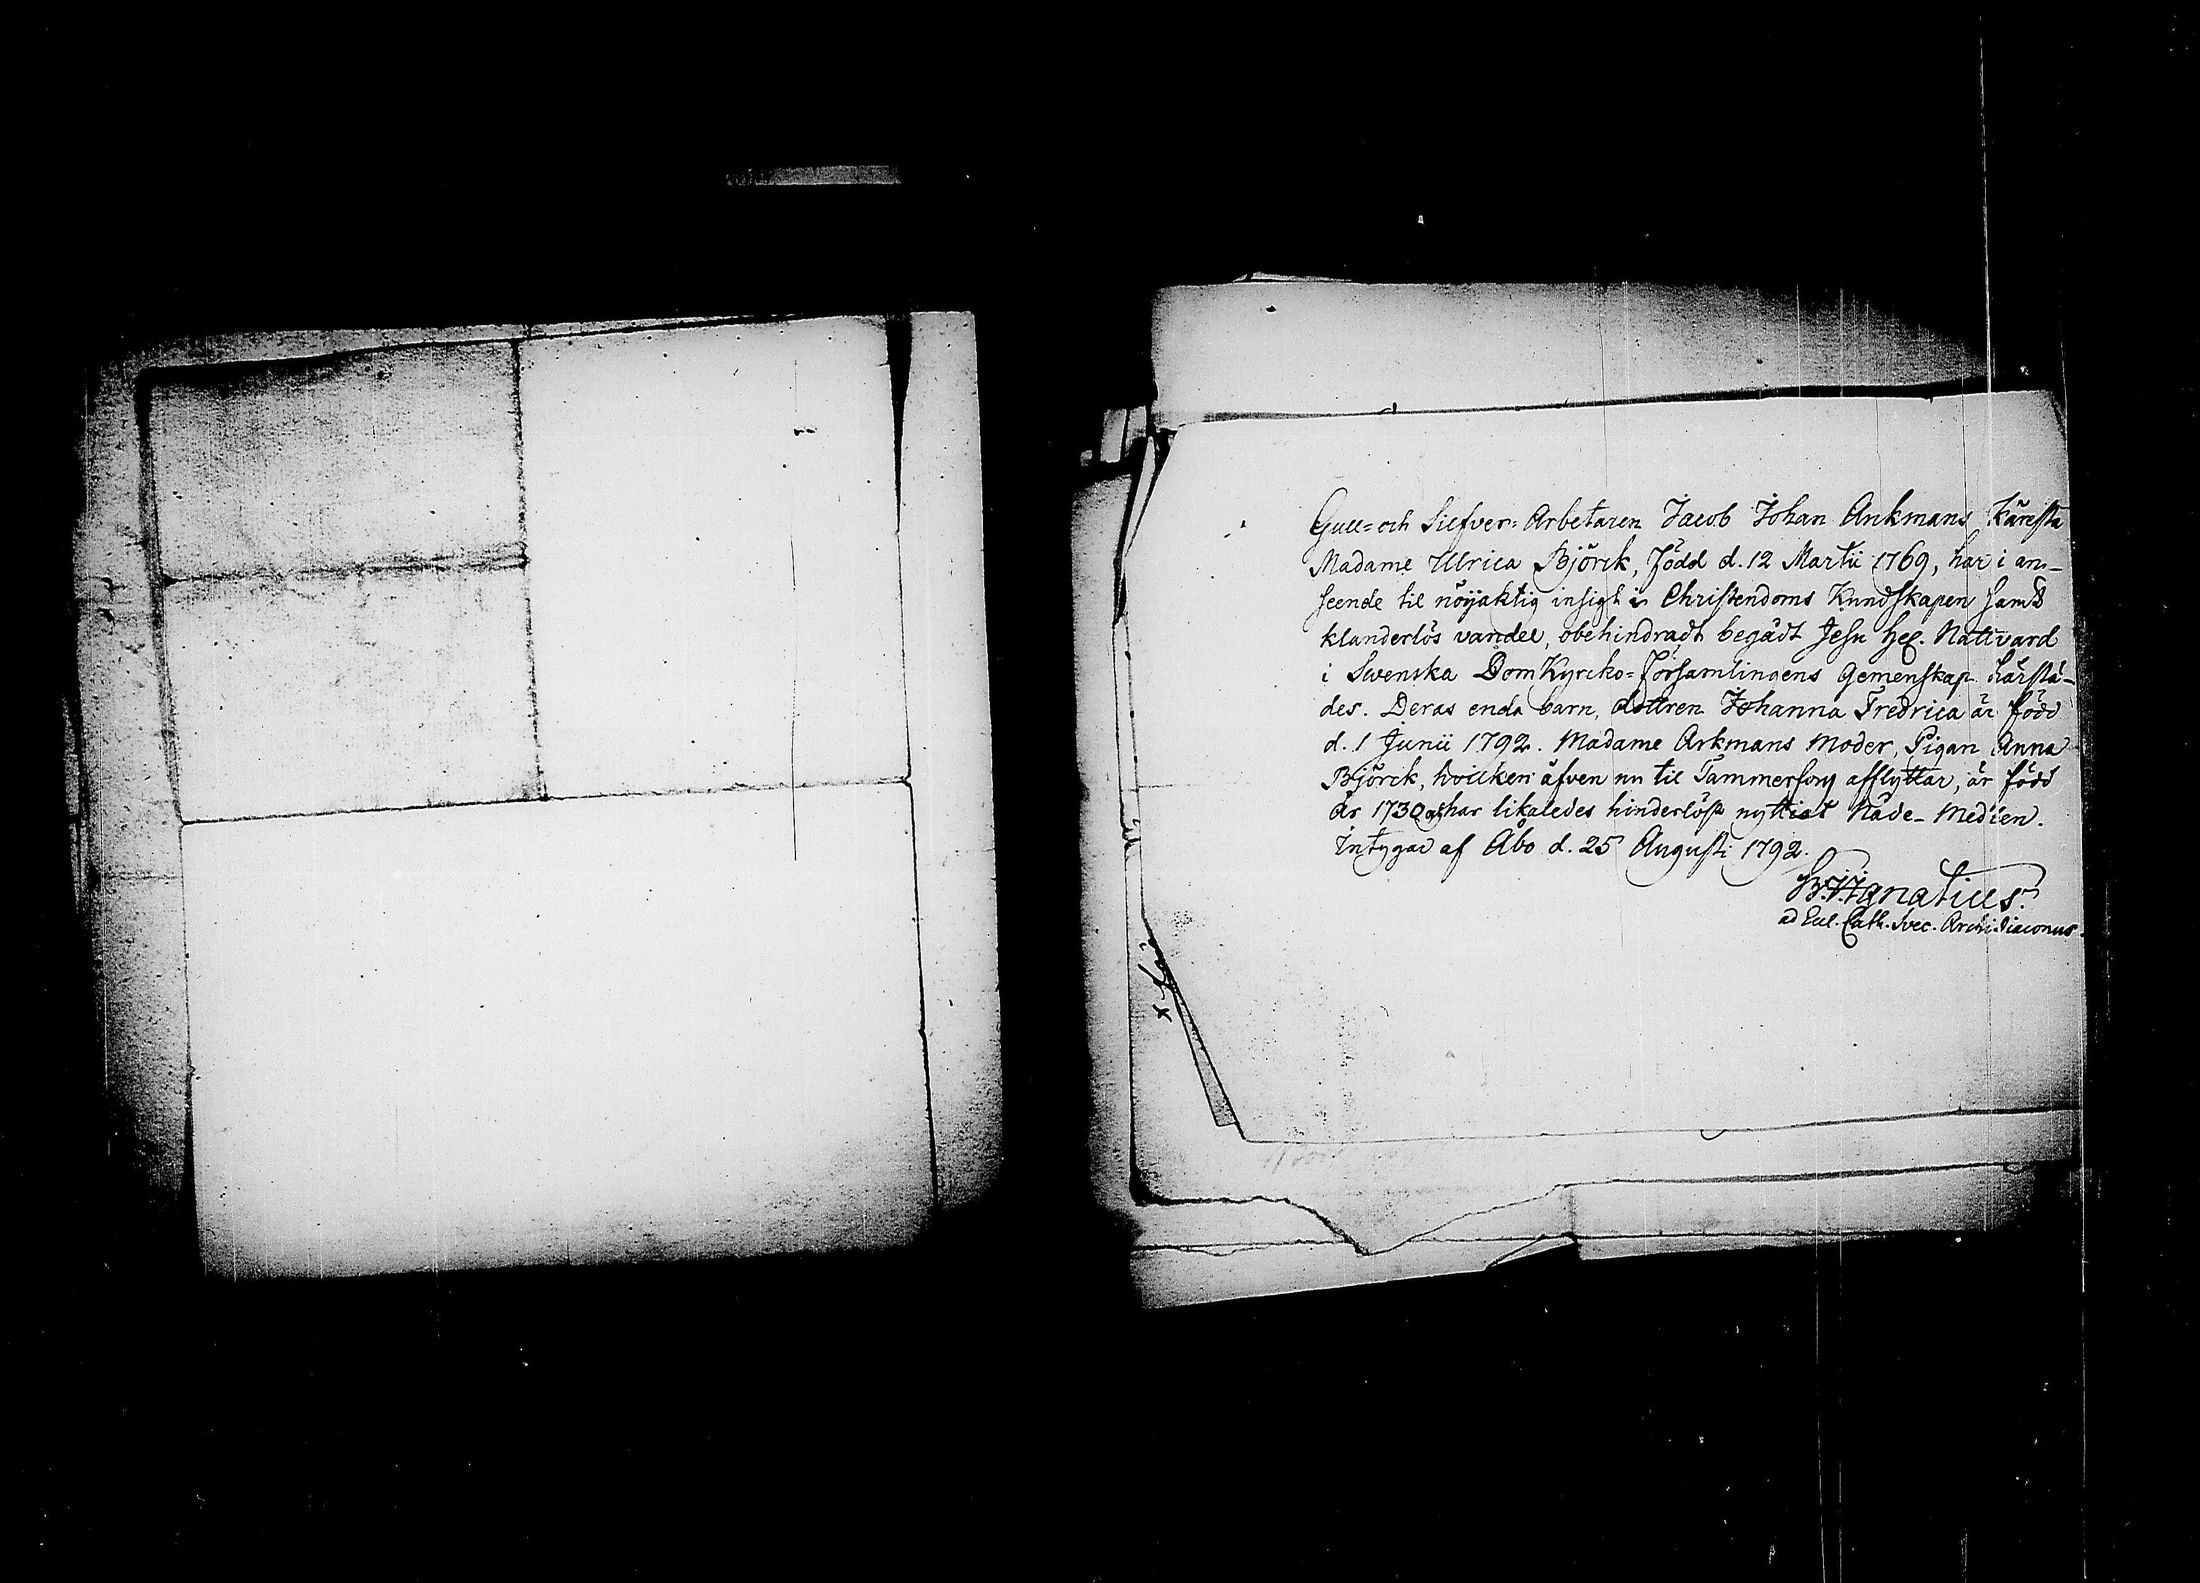 Gull- och Silfver-Arbetaren Jacob Johan Arkmans Käresta
Madame Ulrica Björck, född d. 12 Martii 1769, har i an-
seende til nöijaktig insigt i Christendoms Kundskapen samt
klanderlös vandel, obehindradt begådt Jesu Hel. Nattvard
i Swenska DomKyrcko-Församlingens Gemenskap härstä-
des. Deras enda barn, dottren Johanna Fredrica är född
d. 1 Junii 1792. Madame Arkmans Moder, Pigan Anna
Björck, hvilken äfven nu til Tammerfors afflyttar, är född
år 1730 har likaledes hinderlöst nyttiat Nåde-Medlen.
Intygar af Åbo d. 25 Augusti 1792.
Ignatius.
ad Eccl. Cath. Svec. Archi.diaconus.